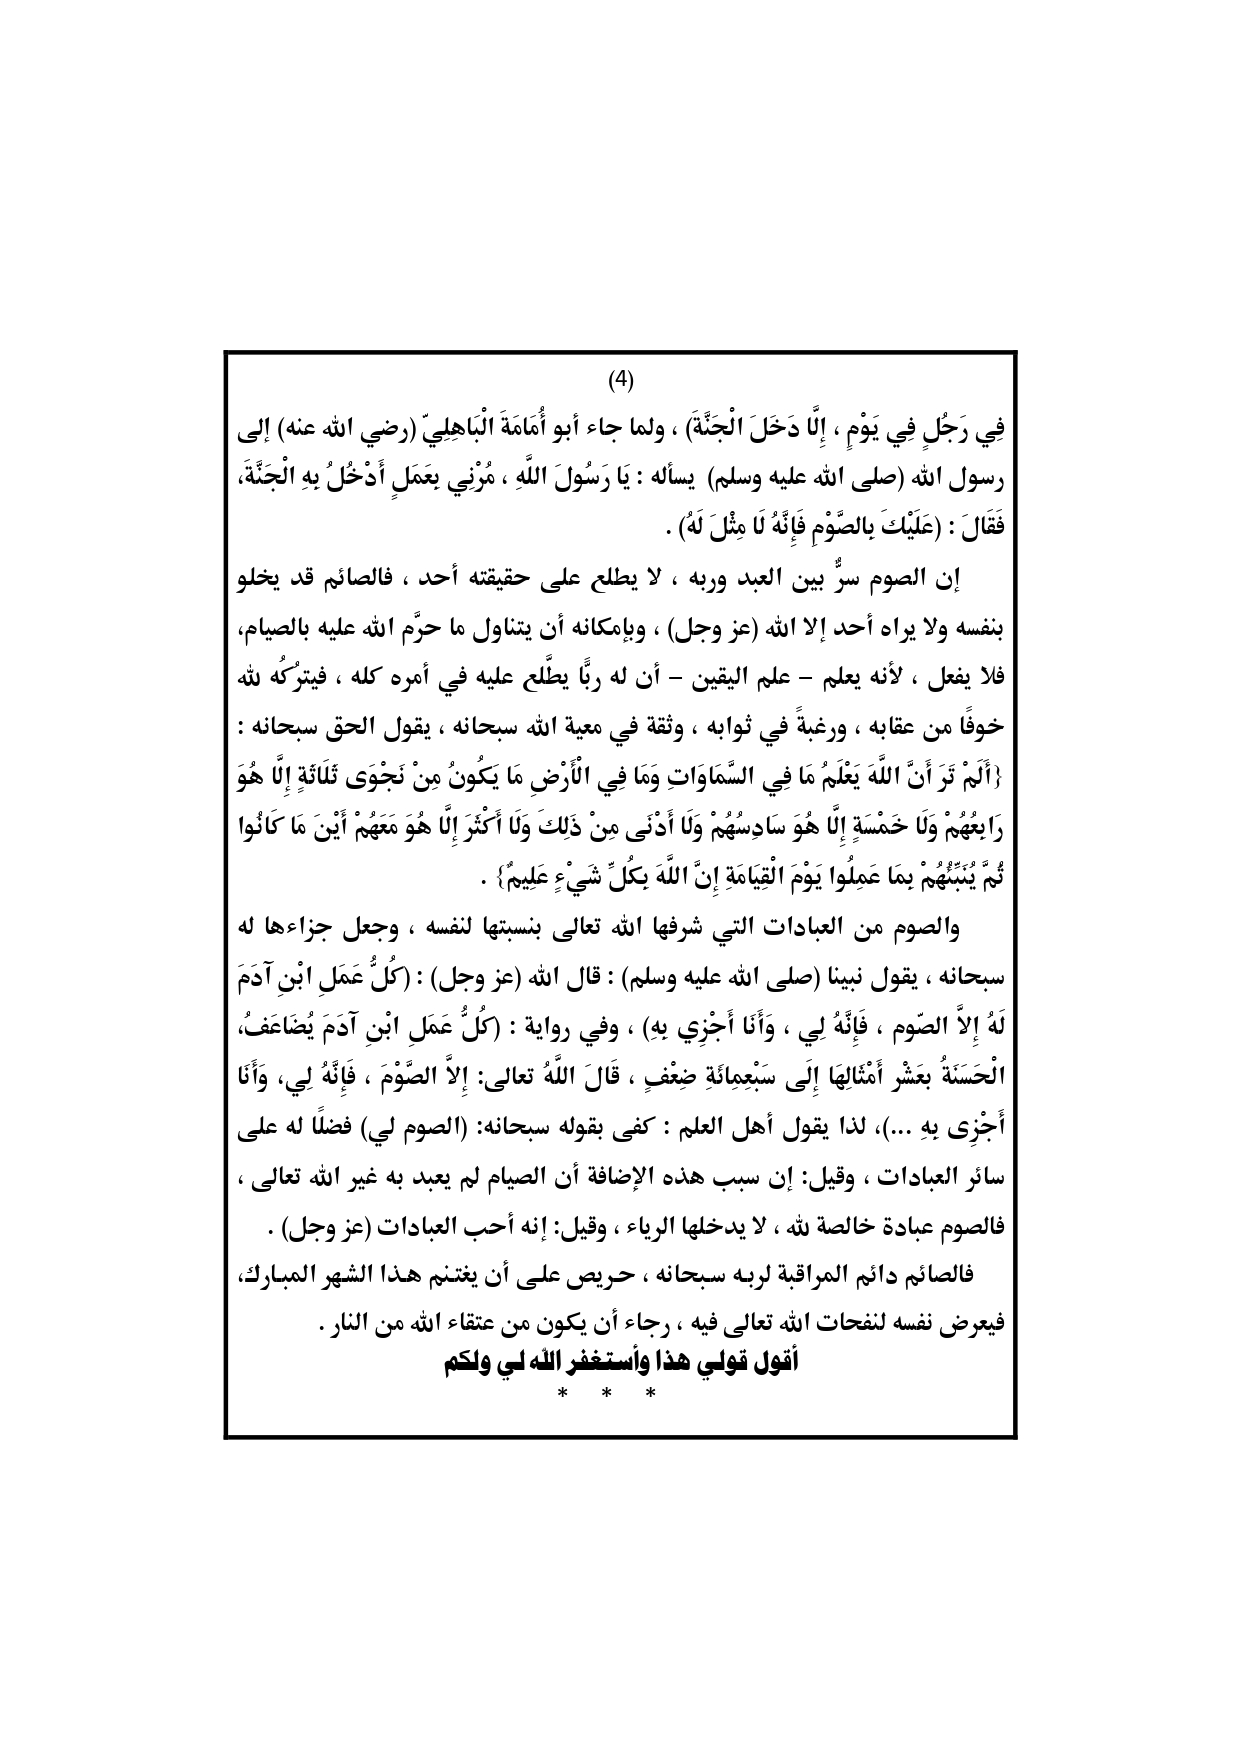 (4)
فِي رَجُلٍ فِي يَوْمٍ ، إِلَّا دَخَلَ الْجَنَّةَ) ، ولما جاء أبو أُمَامَةَ الْبَاهِلِيّ (رضي الله عنه) إلى
رسول الله (صلى الله عليه وسلم) يسأله : يَا رَسُولَ اللَّهِ ، مُرْنِي بِعَمَلٍ أَدْخُلُ بِهِ الْجَنَّةَ،
فَقَالَ : (عَلَيْكَ بِالصَّوْمِ فَإِنَّهُ لَا مِثْلَ لَهُ) .
إن الصوم سرٌّ بين العبد وربه ، لا يطلع على حقيقته أحد ، فالصائم قد يخلو
بنفسه ولا يراه أحد إلا الله (عز وجل) ، وبإمكانه أن يتناول ما حرَّم الله عليه بالصيام،
فلا يفعل ، لأنه يعلم – علم اليقين – أن له ربًّا يطَّلع عليه في أمره كله ، فيتركُه لله
خوفًا من عقابه ، ورغبةً في ثوابه ، وثقة في معية الله سبحانه ، يقول الحق سبحانه :
{أَلَمْ تَرَ أَنَّ اللَّهَ يَعْلَمُ مَا فِي السَّمَاوَاتِ وَمَا فِي الْأَرْضِ مَا يَكُونُ مِنْ نَجْوَى ثَلَاثَةٍ إِلَّا هُوَ
رَابِعُهُمْ وَلَا خَمْسَةٍ إِلَّا هُوَ سَادِسُهُمْ وَلَا أَدْنَى مِنْ ذَلِكَ وَلَا أَكْثَرَ إِلَّا هُوَ مَعَهُمْ أَيْنَ مَا كَانُوا
ثُمَّ يُنَبِّئُهُمْ بِمَا عَمِلُوا يَوْمَ الْقِيَامَةِ إِنَّ اللَّهَ بِكُلِّ شَيْءٍ عَلِيمٌ} .
والصوم من العبادات التي شرفها الله تعالى بنسبتها لنفسه ، وجعل جزاءها له
سبحانه ، يقول نبينا (صلى الله عليه وسلم) : قال الله (عز وجل) : (كُلُّ عَمَلِ ابْنِ آدَمَ
لَهُ إِلاَّ الصّوم ، فَإِنَّهُ لِي ، وَأَنَا أَجْزِي بِهِ) ، وفي رواية : (كُلُّ عَمَلِ ابْنِ آدَمَ يُضَاعَفُ،
الْحَسَنَةُ بعَشْر أَمْثَالِهَا إِلَى سَبْعِمِائَةِ ضِعْفٍ ، قَالَ اللَّهُ تعالى: إِلاَّ الصَّوْمَ ، فَإِنَّهُ لِي، وَأَنَا
أَجْزِى بِهِ ...)، لذا يقول أهل العلم : كفى بقوله سبحانه: (الصوم لي) فضلًا له على
سائر العبادات ، وقيل: إن سبب هذه الإضافة أن الصيام لم يعبد به غير الله تعالى ،
فالصوم عبادة خالصة لله ، لا يدخلها الرياء ، وقيل: إنه أحب العبادات (عز وجل) .
فالصائم دائم المراقبة لربه سبحانه ، حريص على أن يغتنم هذا الشهر المبارك،
فيعرض نفسه لنفحات الله تعالى فيه ، رجاء أن يكون من عتقاء الله من النار .
أقول قولي هذا وأستغفر الله لي ولكم
* * *